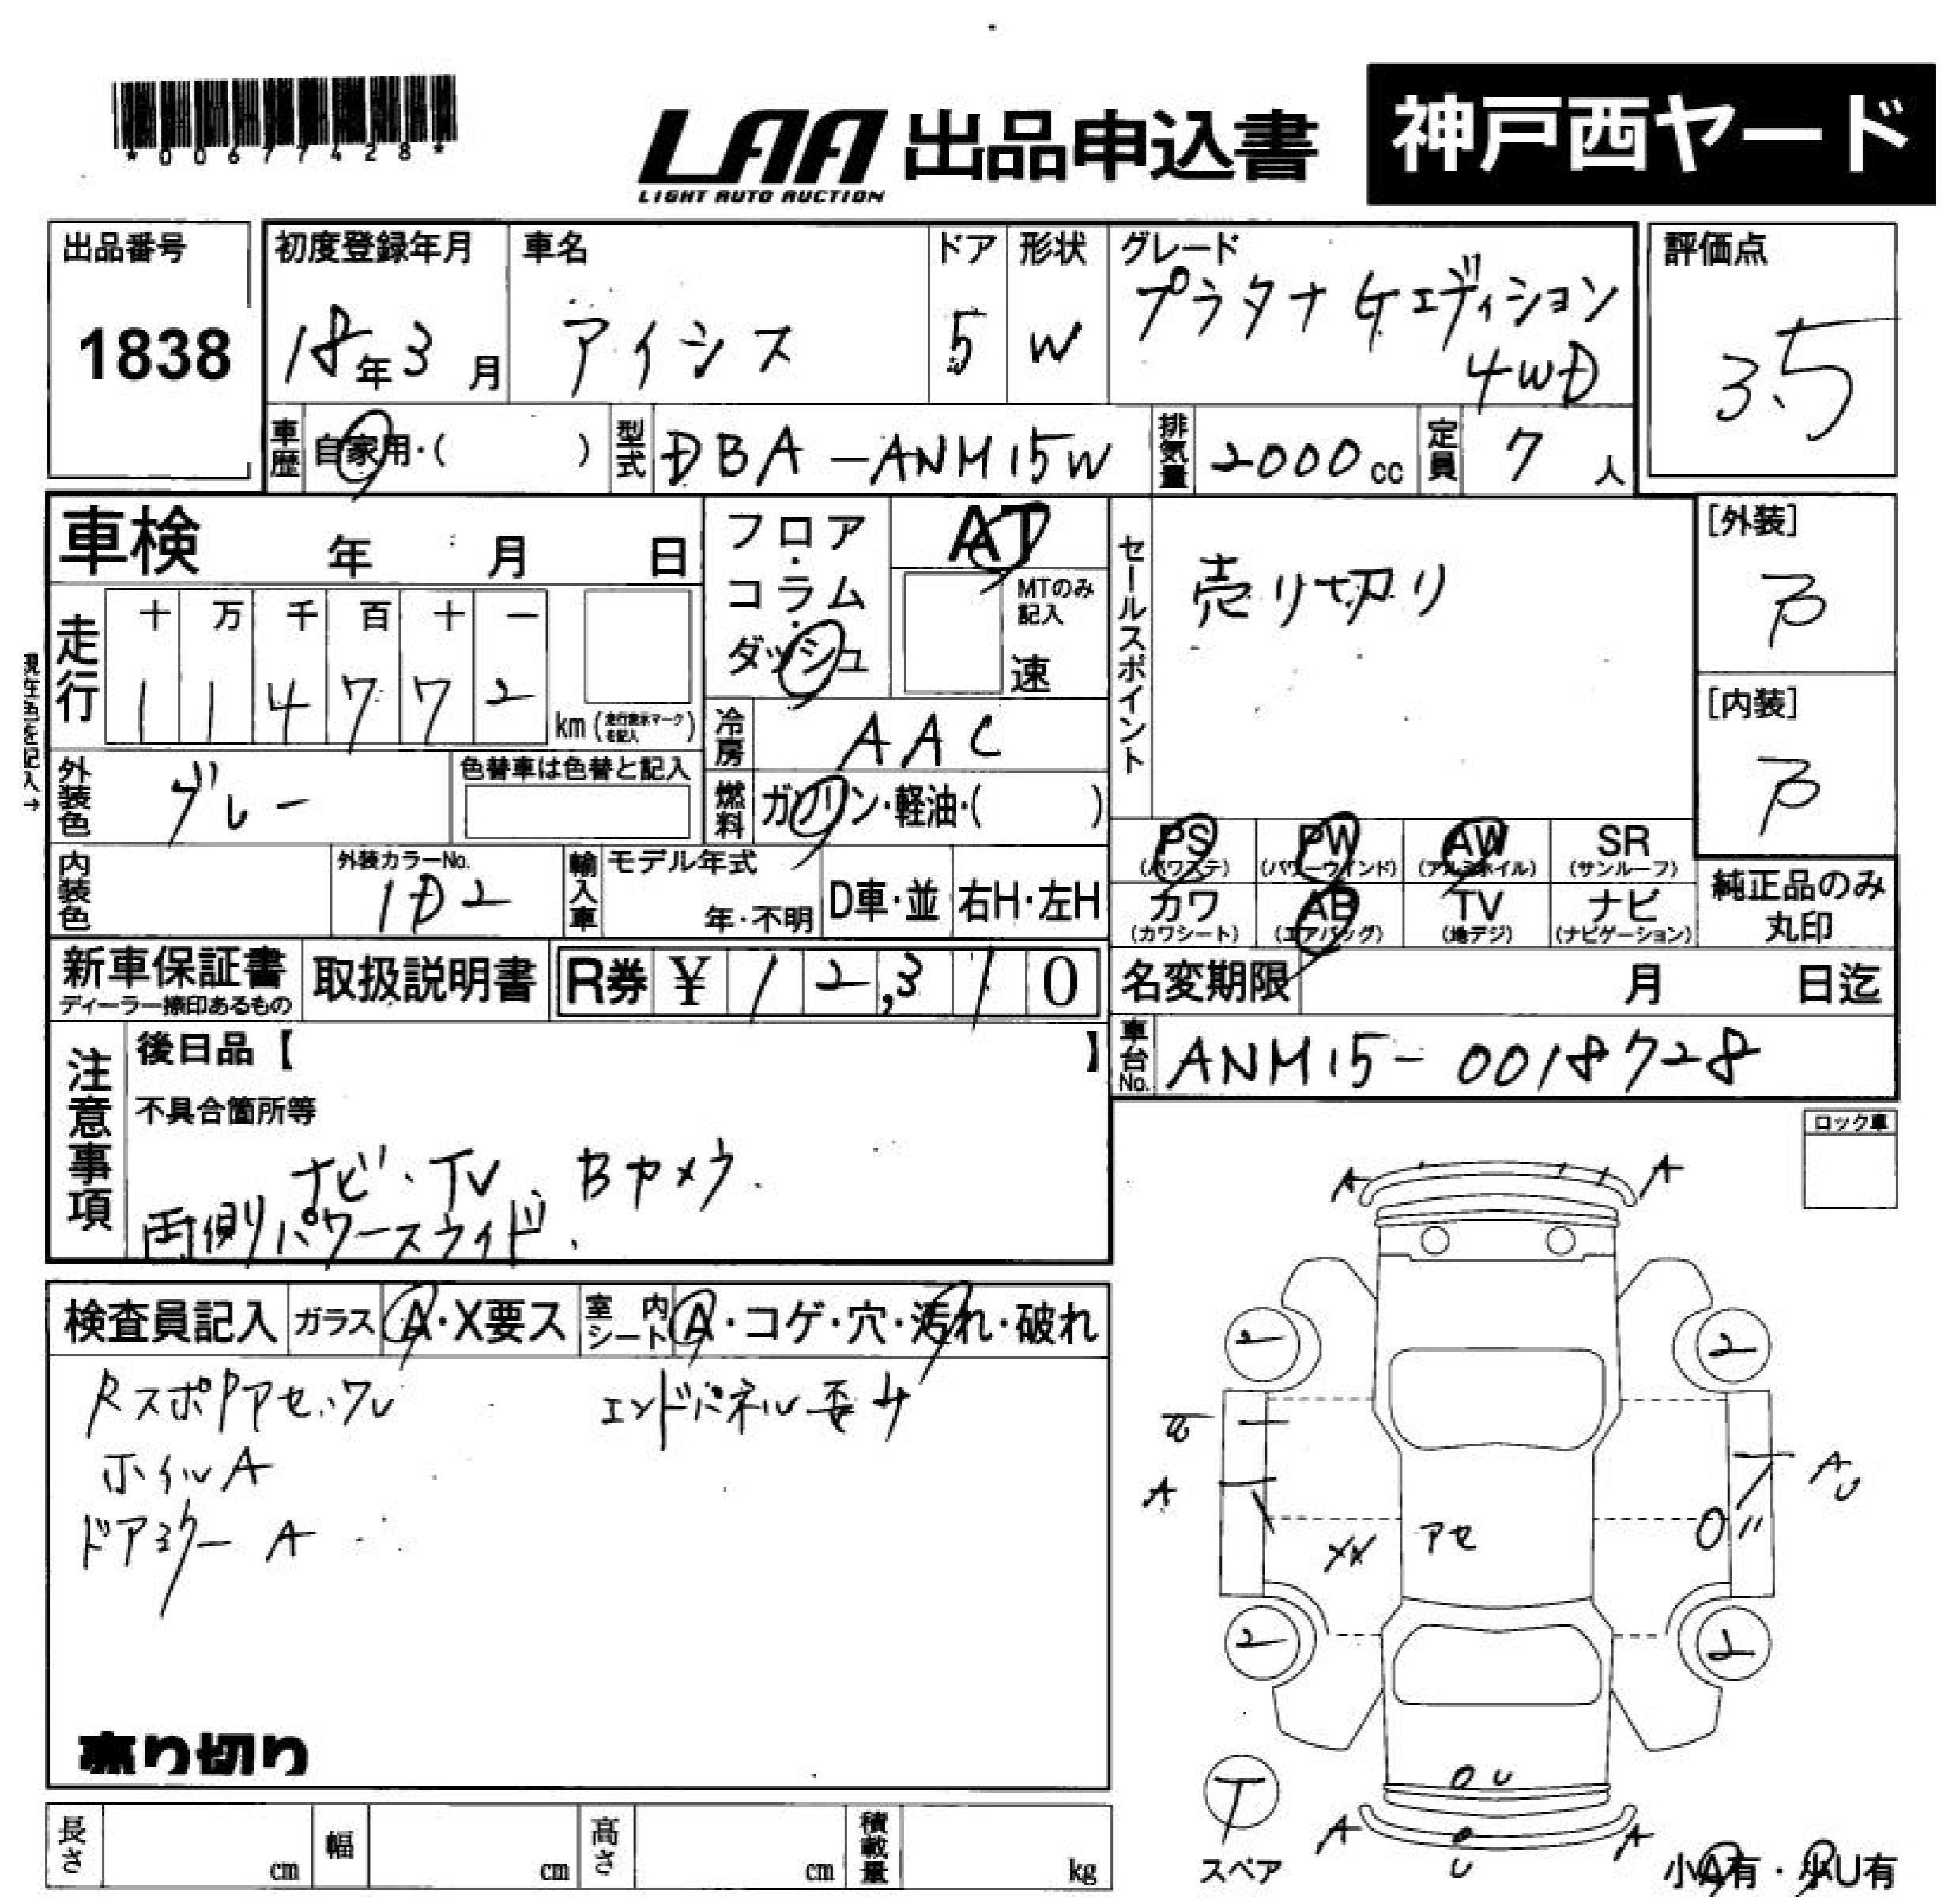 *00677428*
LAA 出品申込書
LIGHT AUTO AUCTION
神戸西ヤード
出品番号
1838
初度登録年月
18年3月
車名
アイシス
ドア
5
形状
W
グレード
プラタナ Gエディション
4WD
評価点
3.5
車歴
自家用・( )
型式
DBA-ANM15W
排気量
2000cc
定員
7人
車検 年 月 日
走行
十 万 千 百 十 一
1 1 4 7 7 2
km (走行表示マークを記入)
現在色を記入→
フロア・コラム・ダッシュ
AT
MTのみ記入
速
冷房
AAC
燃料
ガソリン・軽油・( )
外装色
グレー
色替車は色替と記入
内装色
外装カラーNo.
1D2
輸入車
モデル年式
年・不明
D車・並
右H・左H
セールスポイント
売り切り
[外装]
[内装]
PS
(パワステ)
PW
(パワーウインド)
AW
(アルミホイル)
SR
(サンルーフ)
カワ
(カワシート)
AB
(エアバッグ)
TV
(地デジ)
ナビ
(ナビゲーション)
純正品のみ
丸印
新車保証書
ディーラー捺印あるもの
取扱説明書
R券 ¥ 12,310
名変期限 月 日迄
車台No.
ANM15-0018728
注意事項
後日品【 】
不具合箇所等
ナビ・TV、Bカメラ.
両側パワースライド.
ロック車
検査員記入
ガラス
A・X要ス
室内シート
A・コゲ・穴・汚れ・破れ
Rスポアセ、ワレ
エンドパネル歪サ
ホイルA
ドアミラー A
売り切り
A A
2 2
A
AU
アセ
2 2
T
スペア
U
A A
U
小A有・小U有
長さ cm
幅 cm
高さ cm
積載量 kg